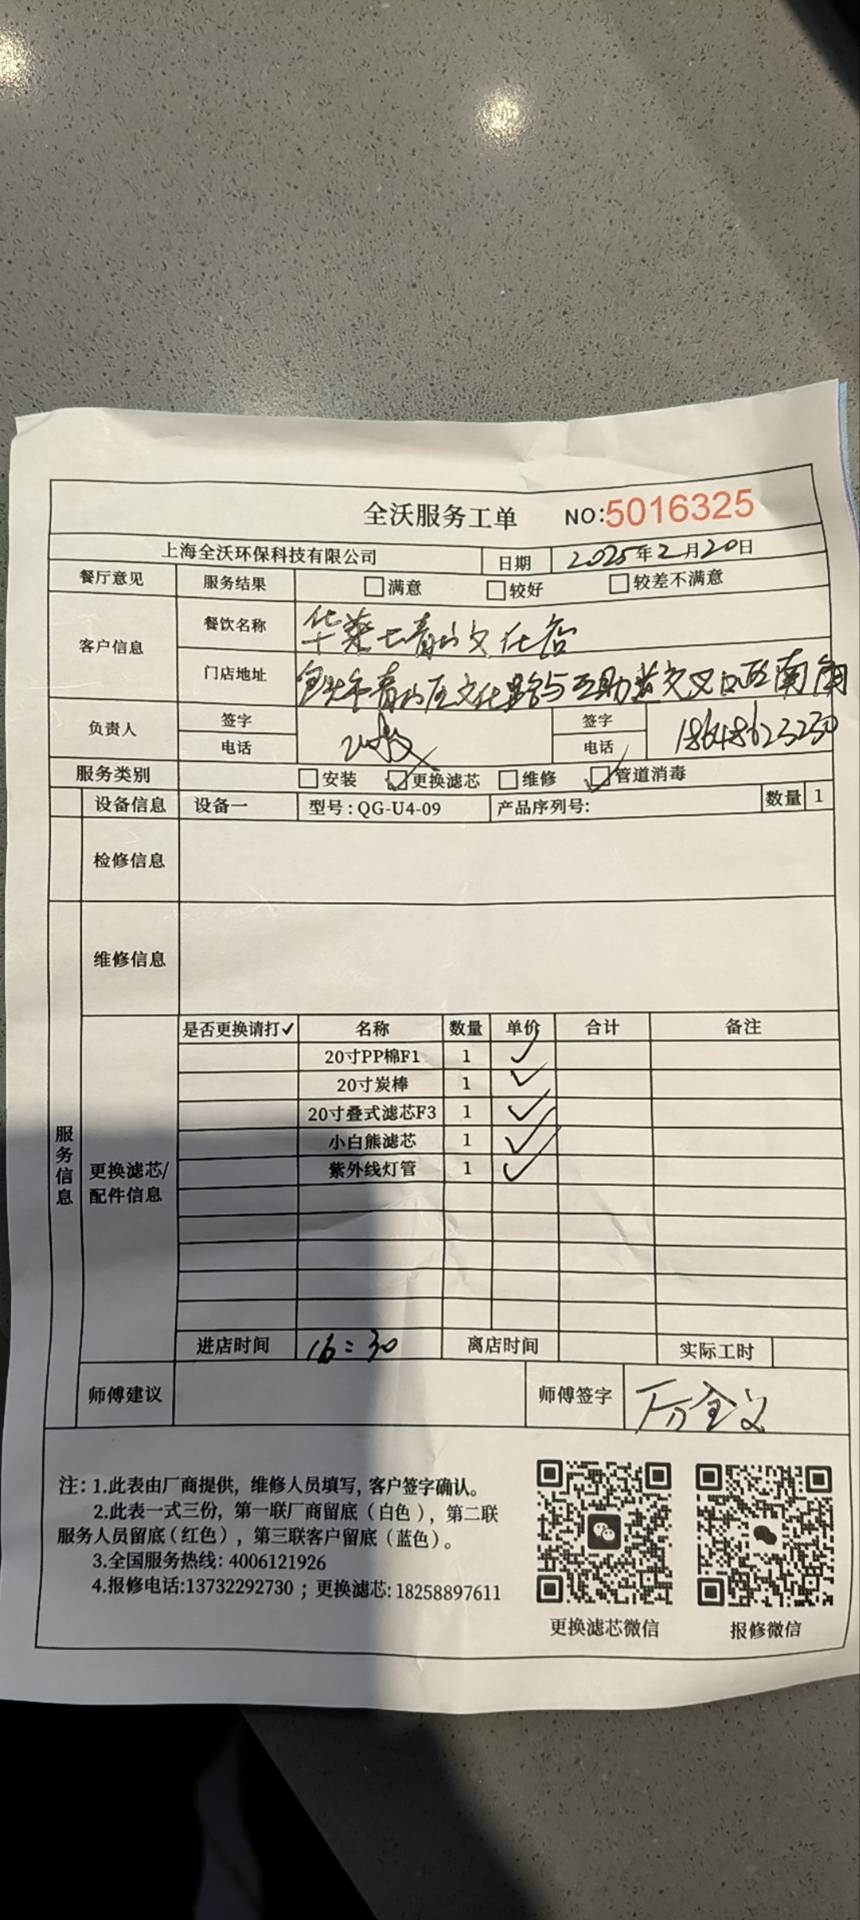 全沃服务工单 NO:5016325
上海全沃环保科技有限公司 日期 2025年2月20日
餐厅意见 服务结果 满意 较好 较差不满意
客户信息 餐饮名称 华莱士青山文化店
门店地址 包头市青山区文化路与互助道交叉口西南角
负责人 签字 签字
电话 电话 18648623230
服务类别 安装 更换滤芯 维修 管道消毒
设备信息 设备一 型号:QG-U4-09 产品序列号: 数量 1
检修信息
维修信息
服务信息
更换滤芯/配件信息
是否更换请打✓ 名称 数量 单价 合计 备注
20寸PP棉F1 1 ✓
20寸炭棒 1 ✓
20寸叠式滤芯F3 1 ✓
小白熊滤芯 1 ✓
紫外线灯管 1 ✓
进店时间 16:30 离店时间 实际工时
师傅建议 师傅签字
注:1.此表由厂商提供,维修人员填写,客户签字确认。
2.此表一式三份,第一联厂商留底(白色),第二联
服务人员留底(红色),第三联客户留底(蓝色)。
3.全国服务热线:4006121926
4.报修电话:13732292730;更换滤芯:18258897611
更换滤芯微信 报修微信